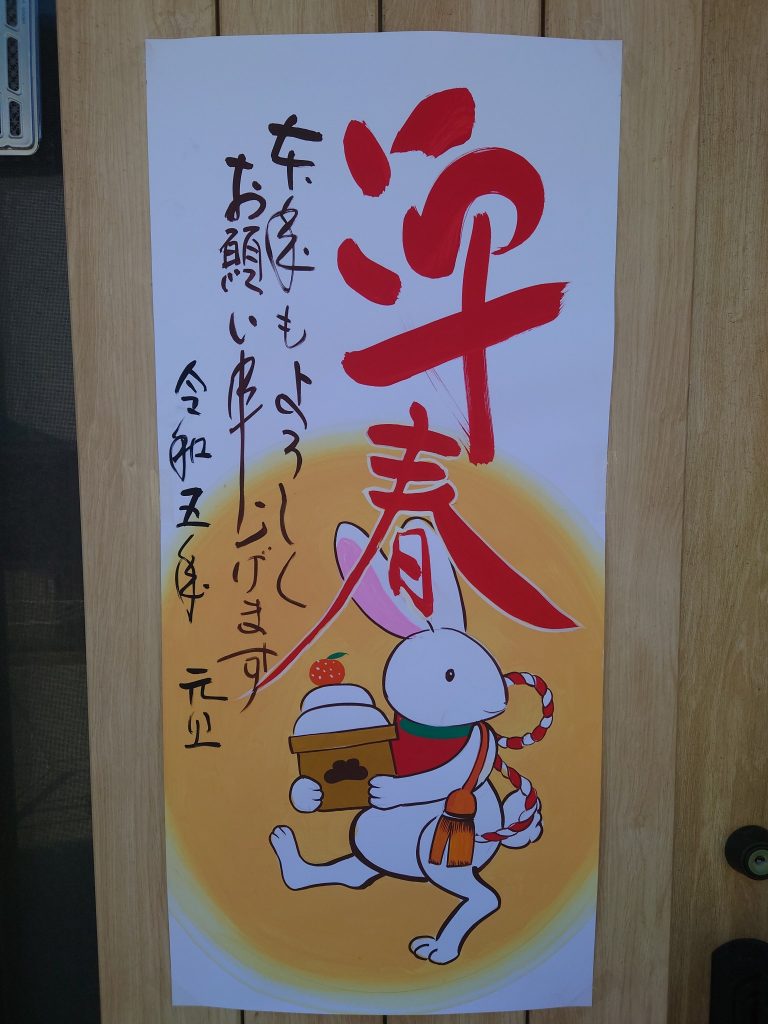 迎春
本年もよろしく
お願い申上げます
令和五年 元旦